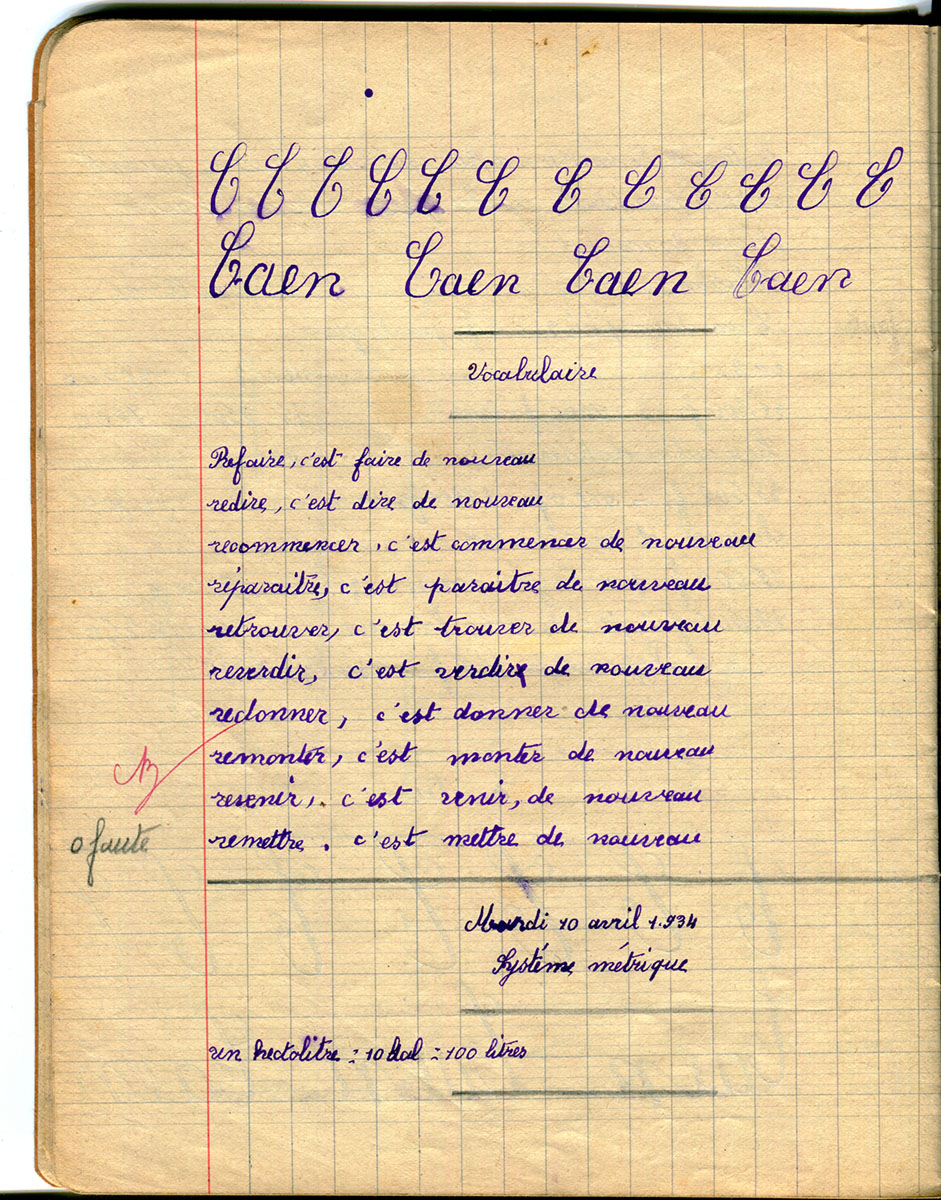 C C C C C C C C C C C C
Caen Caen Caen Caen
Vocabulaire
Refaire, c'est faire de nouveau
redire, c'est dire de nouveau
recommencer, c'est commencer de nouveau
réparaitre, c'est paraitre de nouveau
retrouver, c'est trouver de nouveau
reverdir, c'est verdir de nouveau
redonner, c'est donner de nouveau
remonter, c'est monter de nouveau
revenir, c'est venir, de nouveau
remettre. c'est mettre de nouveau
0 faute
Mardi 10 avril 1.934
Systéme métrique
un hectolitre = 10 dal = 100 litres